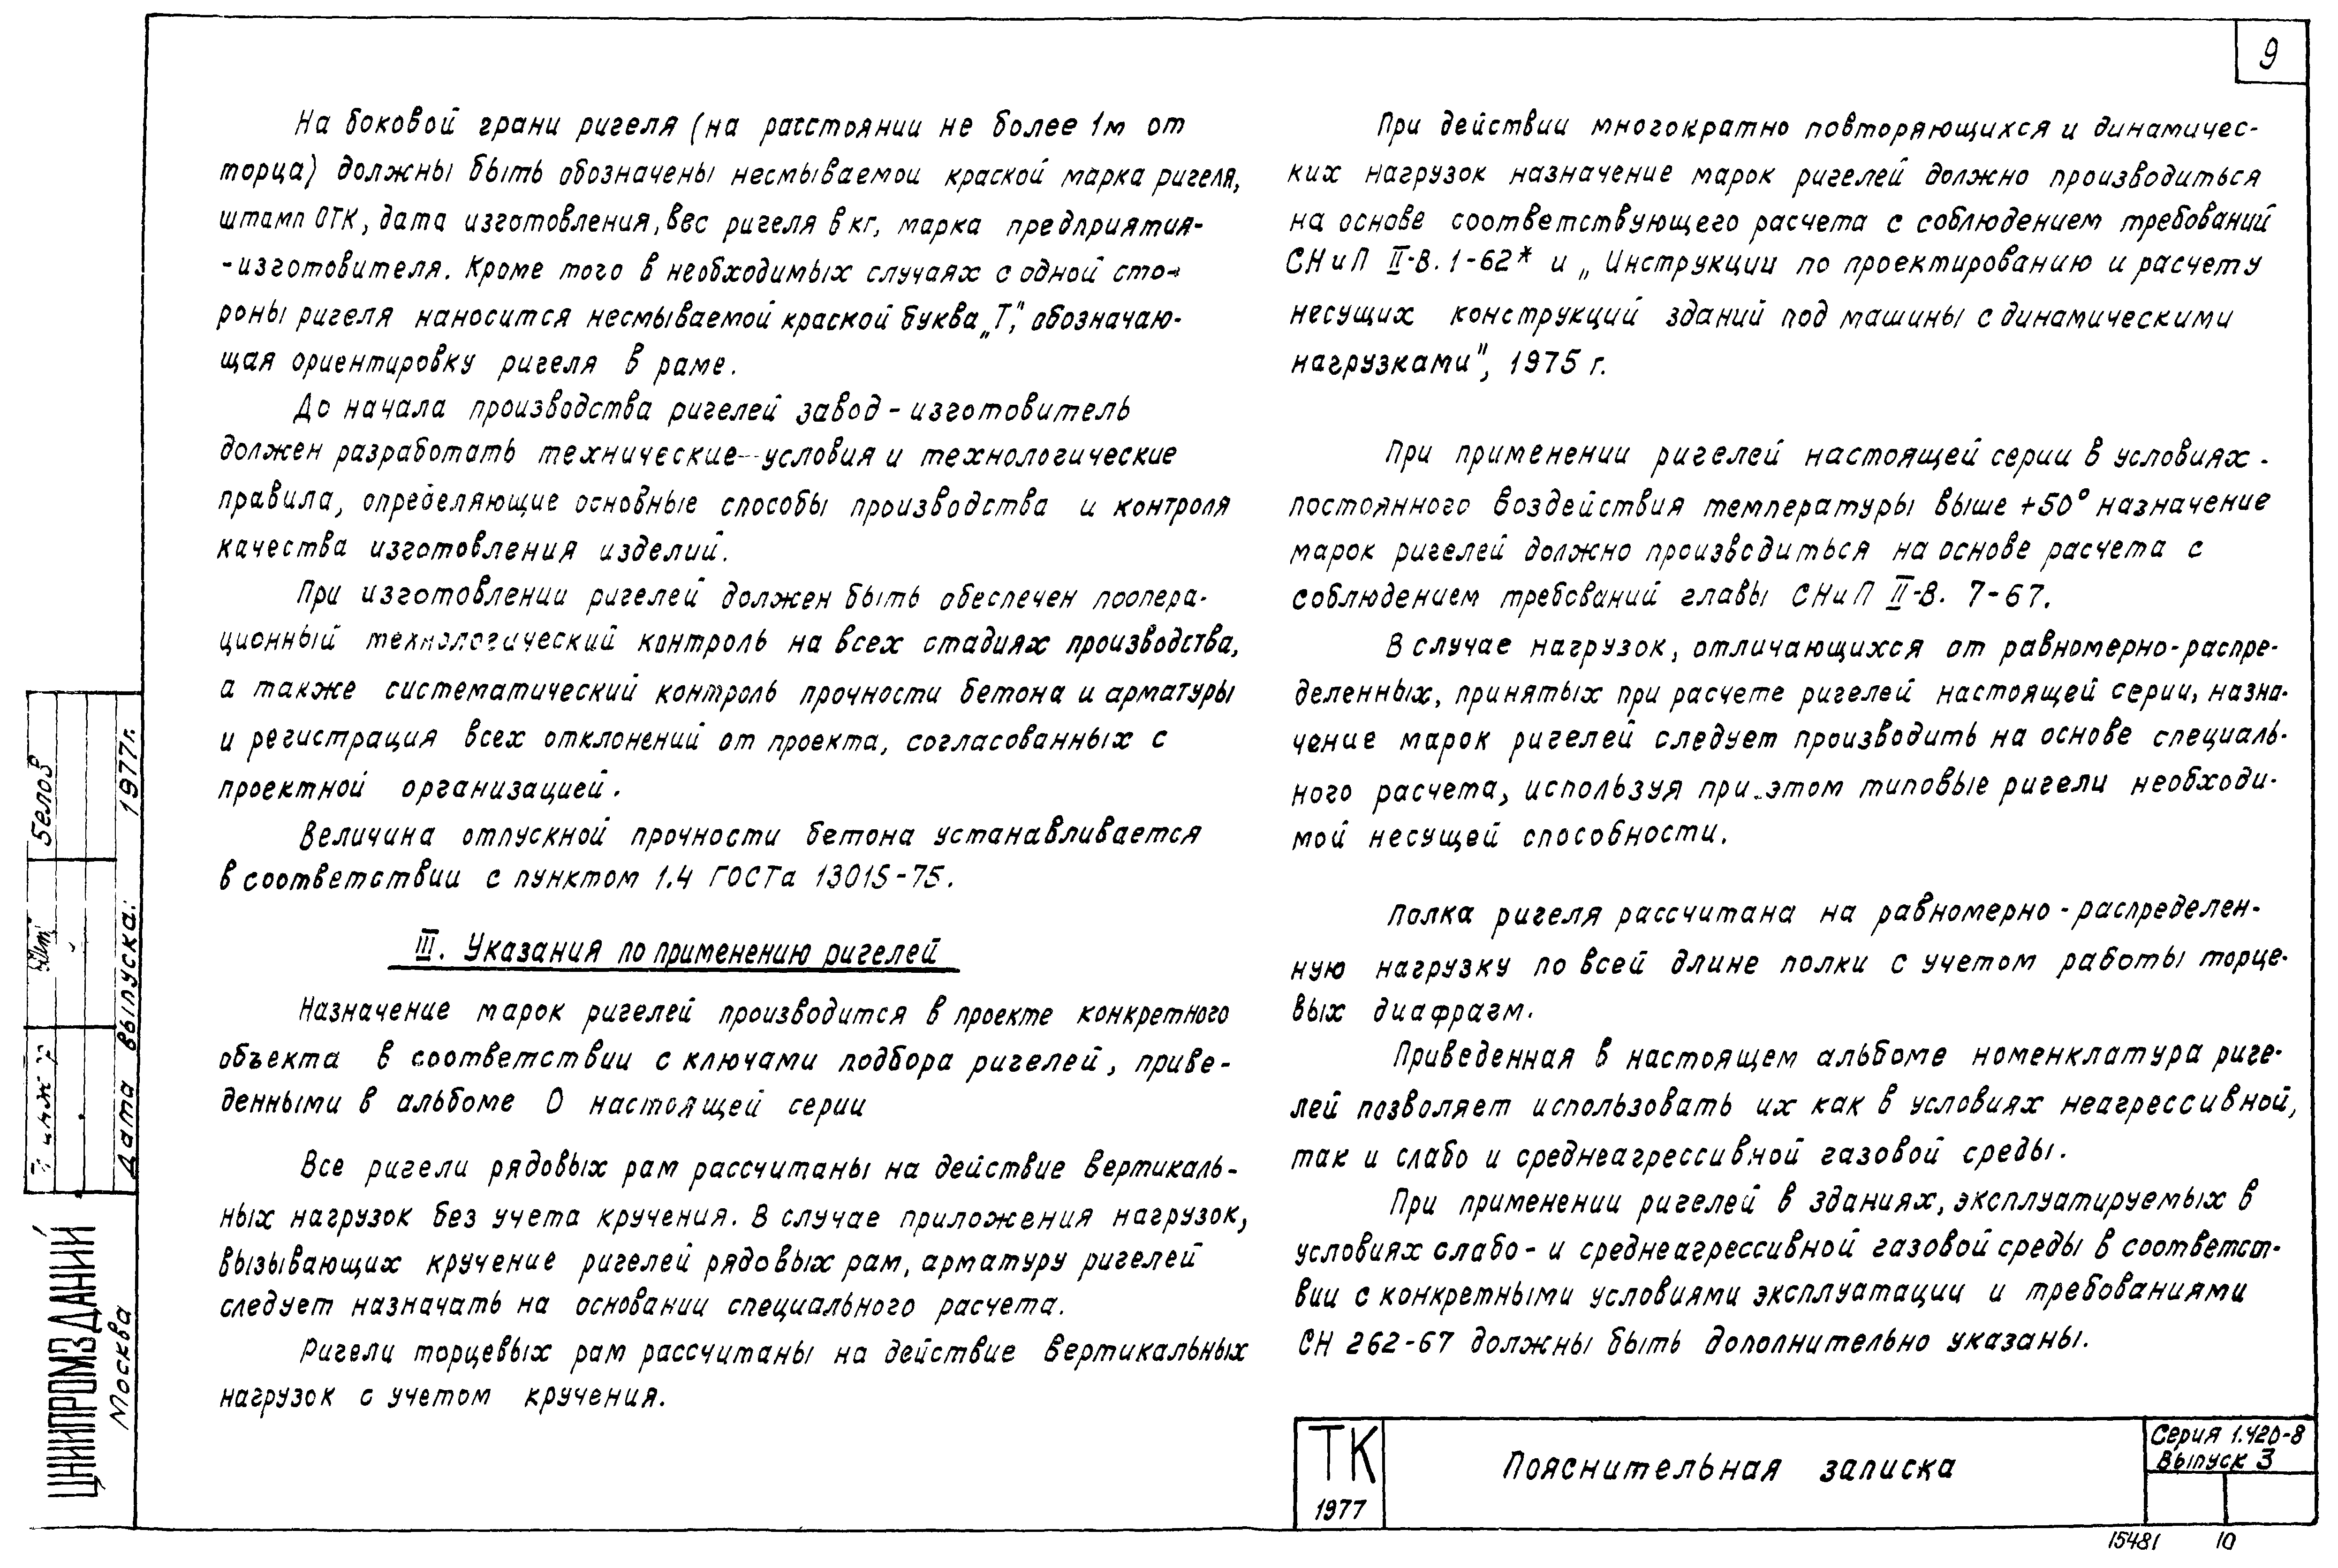 9
На боковой грани ригеля (на расстоянии не более 1м от
торца) должны быть обозначены несмываемои краской марка ригеля,
штамп ОТК, дата изготовления, вес ригеля в кг, марка предприятия-
-изготовителя. Кроме того в необходимых случаях с одной сто-
роны ригеля наносится несмываемой краской буква „Т", обозначаю-
щая ориентировку ригеля в раме.
До начала производства ригелей завод-изготовитель
должен разработать технические условия и технологические
правила, определяющие основные способы производства и контроля
качества изготовления изделий.
При изготовлении ригелей должен быть обеспечен поопера-
ционный технологический контроль на всех стадиях производства,
а также систематический контроль прочности бетона и арматуры
и регистрация всех отклонений от проекта, согласованных с
проектной организацией.
Величина отпускной прочности бетона устанавливается
в соответствии с пунктом 1.4 ГОСТа 13015-75.
III. Указания по применению ригелей
Назначение марок ригелей производится в проекте конкретного
объекта в соответствии с ключами подбора ригелей, приве-
денными в альбоме 0 настоящей серии
Все ригели рядовых рам рассчитаны на действие вертикаль-
ных нагрузок без учета кручения. В случае приложения нагрузок,
вызывающих кручение ригелей рядовых рам, арматуру ригелей
следует назначать на основании специального расчета.
Ригели торцевых рам рассчитаны на действие вертикальных
нагрузок с учетом кручения.
При действии многократно повторяющихся и динамичес-
ких нагрузок назначение марок ригелей должно производиться
на основе соответствующего расчета с соблюдением требований
СНиП II-В. 1-62* и „Инструкции по проектированию и расчету
несущих конструкций зданий под машины с динамическими
нагрузками", 1975 г.
При применении ригелей настоящей серии в условиях
постоянного воздействия температуры выше +50° назначение
марок ригелей должно производиться на основе расчета с
соблюдением требований главы СНиП II-В. 7-67.
В случае нагрузок, отличающихся от равномерно-распре-
деленных, принятых при расчете ригелей настоящей серии, назна-
чение марок ригелей следует производить на основе специаль-
ного расчета, используя при этом типовые ригели необходи-
мой несущей способности.
Полка ригеля рассчитана на равномерно-распределен-
ную нагрузку по всей длине полки с учетом работы торце-
вых диафрагм.
Приведенная в настоящем альбоме номенклатура риге-
лей позволяет использовать их как в условиях неагрессивной,
так и слабо и среднеагрессивной газовой среды.
При применении ригелей в зданиях, эксплуатируемых в
условиях слабо- и среднеагрессивной газовой среды в соответст-
вии с конкретными условиями эксплуатации и требованиями
СН 262-67 должны быть дополнительно указаны.
Белов
Дата выпуска: 1977г.
ЦНИИПРОМЗДАНИЙ
Москва
ТК
1977
Пояснительная записка
Серия 1.420-8
Выпуск 3
15481 10